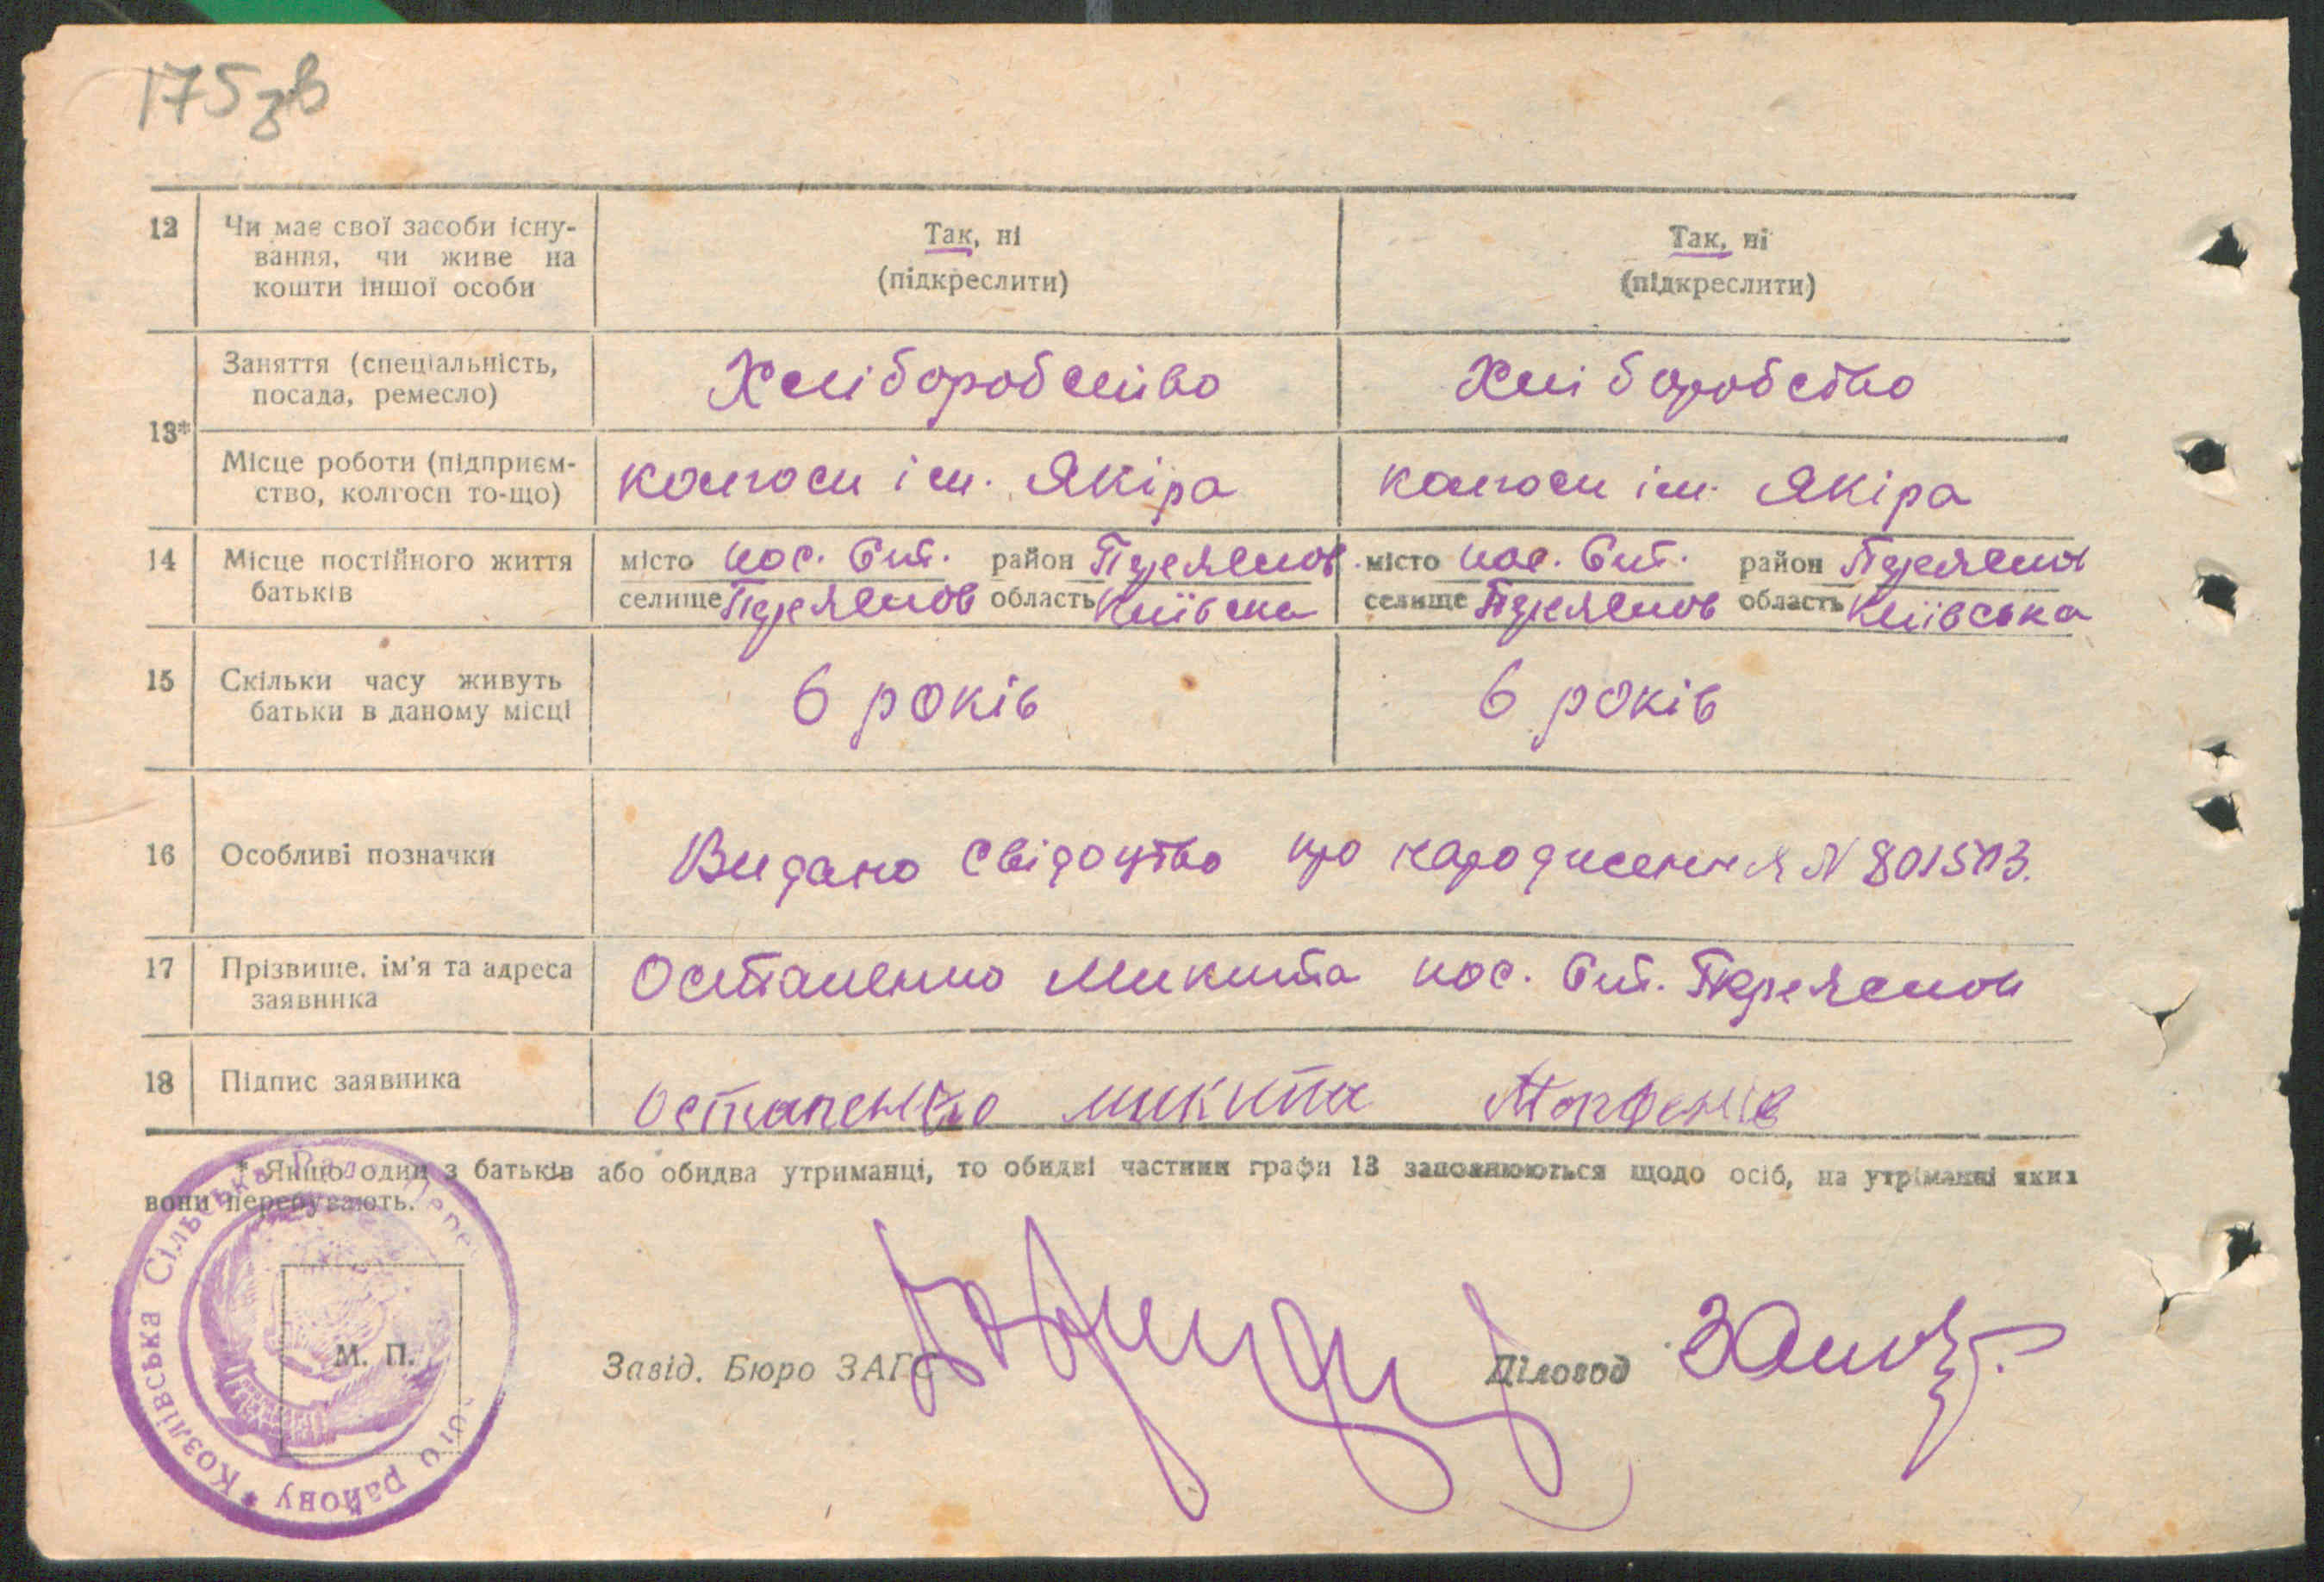 175зв
12 Чи має свої засоби існу- Так, ні Так, ні
вання, чи живе на (підкреслити) (підкреслити)
кошти іншої особи
13* Заняття (спеціальність, Хліборобство Хліборобство
посада, ремесло)
Місце роботи (підприєм- колгосп ім. Якіра колгосп ім. Якіра
ство, колгосп то-що)
14 Місце постійного життя місто пос. район Переяслов місто пос. район Переяслов
батьків селище Переяслов область Київська селище Переяслов область Київська
15 Скільки часу живуть 6 років 6 років
батьки в даному місці
16 Особливі позначки Видано свідоцтво про народження N
17 Прізвище, ім'я та адреса Остапенко Микита пос. Переяслов
заявника
18 Підпис заявника Остапенко микита
* Якщо один з батьків або обидва утриманці, то обидві частини графи 13 заповнюються щодо осіб, на утріманні яких
вони перебувають.
Козлівська Сільська Рада району *
М. П.
Завід. Бюро ЗАГС Діловод